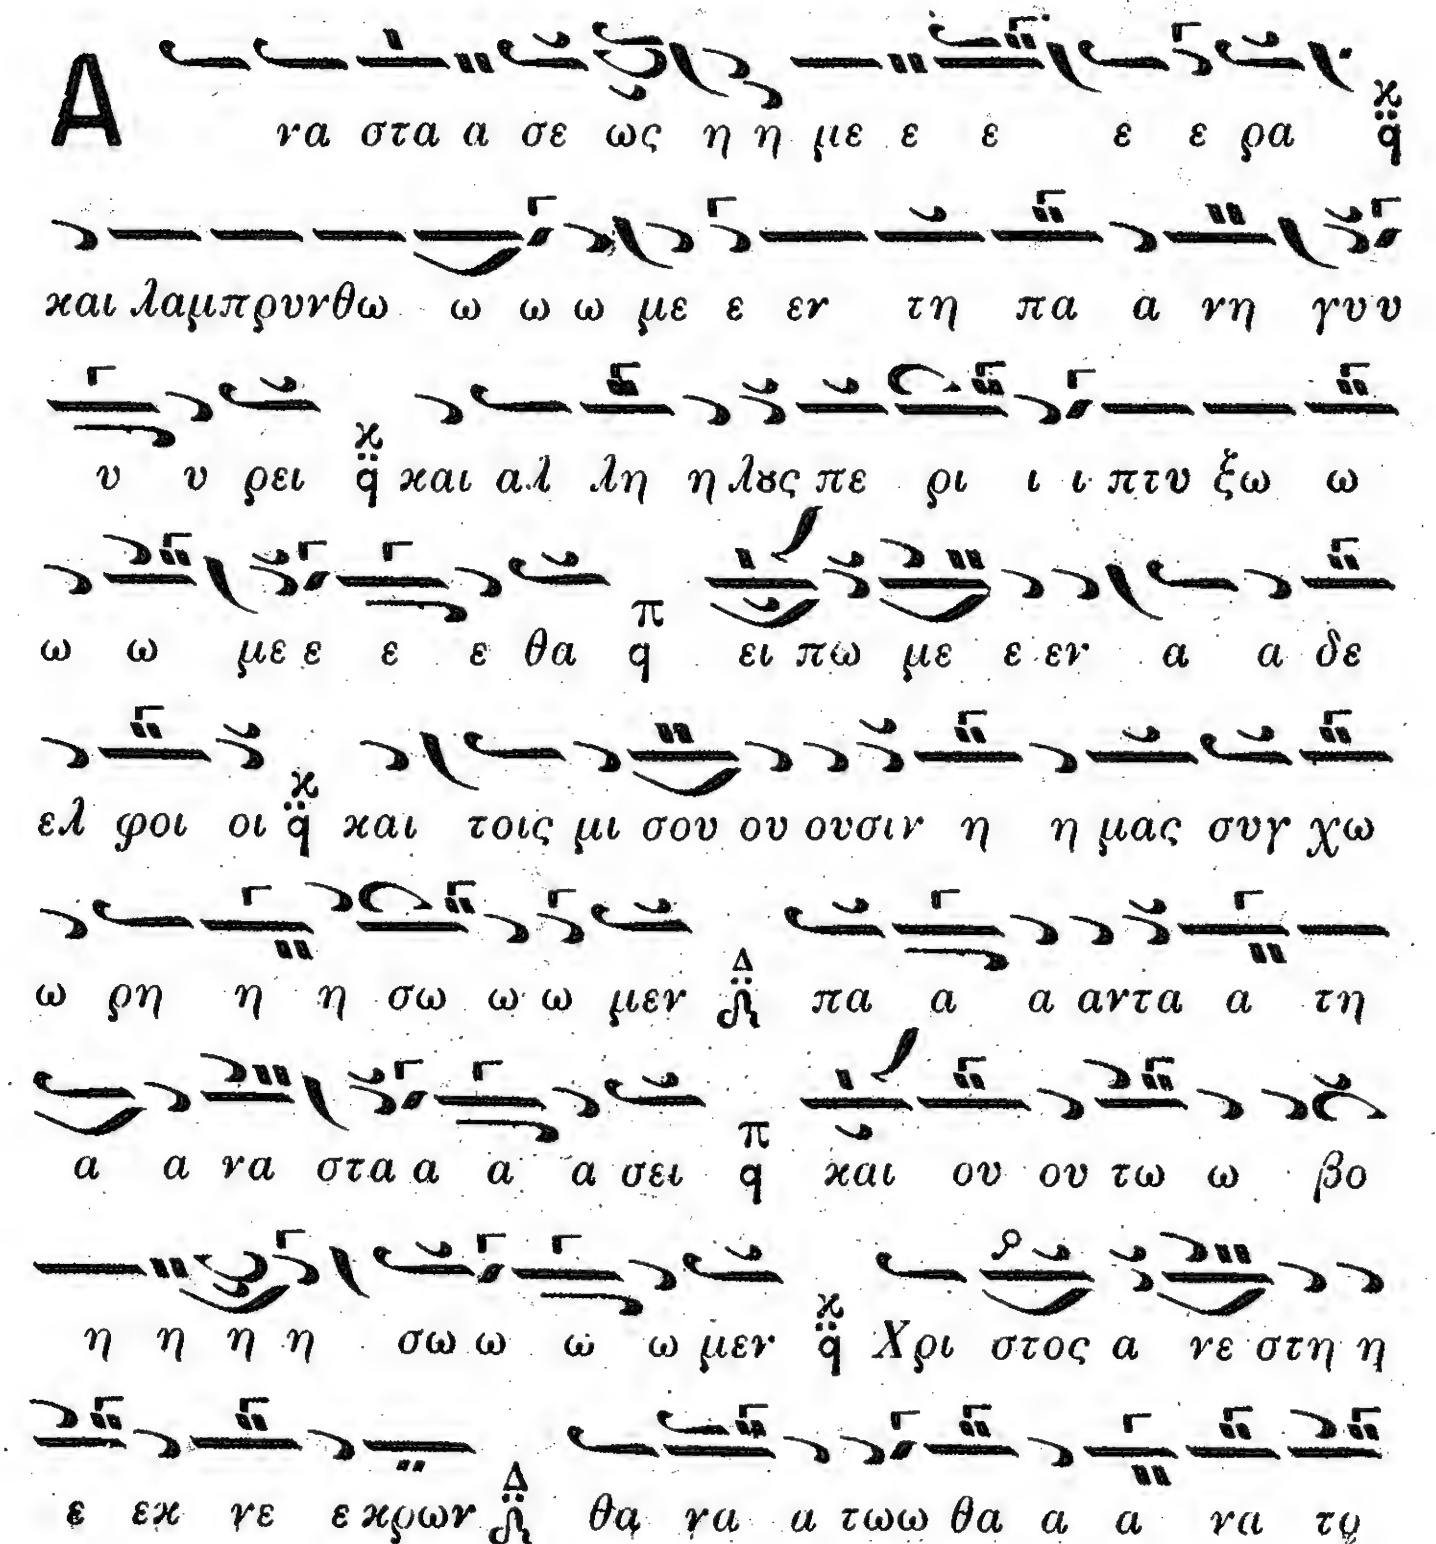 Α να στα α σε ως η η με ε ε ε ε ρα ϰ q
και λαμπρυνθω ω ω ω με ε εν τη πα α νη γυ υ
υ υ ρει ϰ q και αλ λη η λȣς πε ρι ι ι πτυ ξω ω
ω ω με ε ε ε θα π q ει πω με ε εν α α δε
ελ φοι οι ϰ q και τοις μι σου ου ουσιν η η μας συγ χω
ω ρη η η σω ω ω μεν Δ πα α α αντα α τη
α α να στα α α α σει π q και ου ου τω ω βο
η η η η σω ω ω ω μεν ϰ q Χρι στος α νε στη η
ε εκ νε ε κρων Δ θα να α τωω θα α α να το